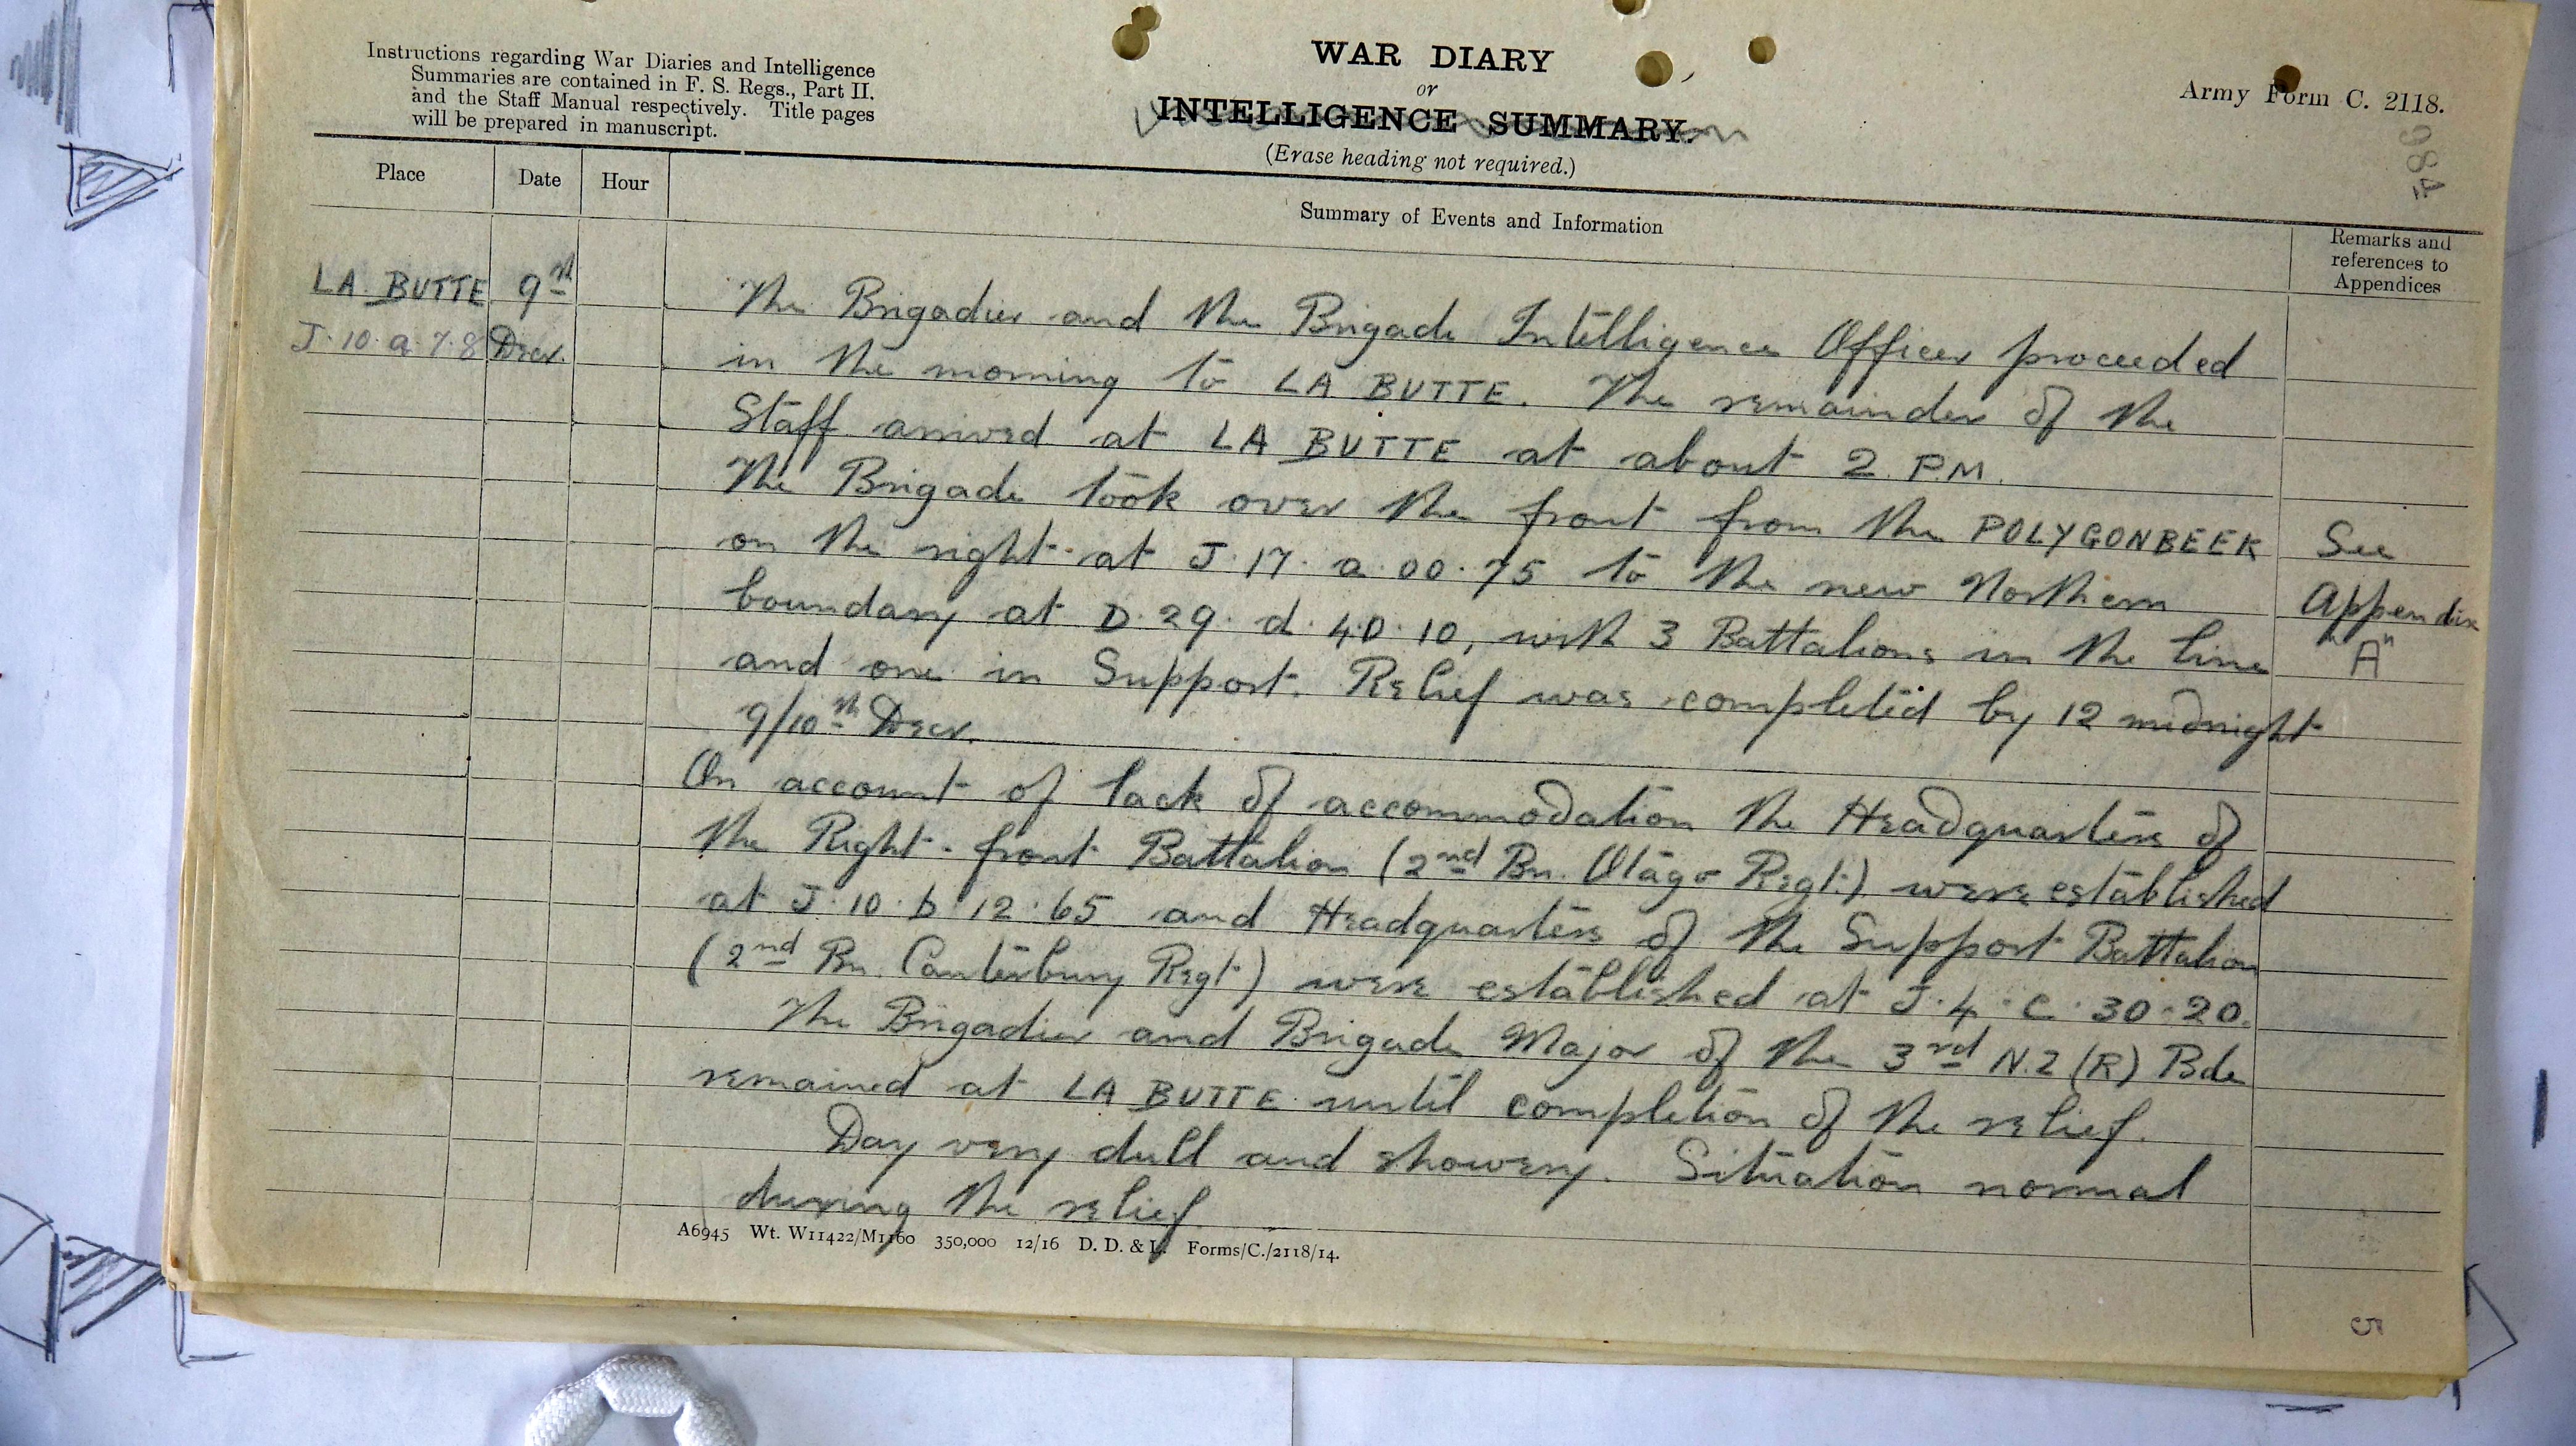 Instructions regarding War Diaries and Intelligence
Summaries are contained in F. S. Regs., Part II.
and the Staff Manual respectively. Title pages
will be prepared in manuscript.
WAR DIARY
or
INTELLIGENCE SUMMARY.
(Erase heading not required.)
Army Form C. 2118.
984
Place Date Hour
Summary of Events and Information
Remarks and
references to
Appendices
LA BUTTE 9th
J.10.a.7.8 Decr.
The Brigadier and the Brigade Intelligence Officer proceeded
in the morning to LA BUTTE. The remainder of the
Staff arrived at LA BUTTE at about 2 P.M.
The Brigade took over the front from the POLYGONBEEK
on the right at J.17.a.00.75 to the new Northern
boundary at D.29.d.40.10, with 3 Battalions in the line
and one in Support. Relief was completed by 12 midnight
9/10th Decr.
See
Appendix
"A"
On account of lack of accommodation the Headquarters of
the Right front Battalion (2nd Bn. Otago Regt.) were established
at J.10.b.12.65 and Headquarters of the Support Battalion
(2nd Bn. Canterbury Regt) were established at J.4.c.30.20.
The Brigadier and Brigade Major of the 3rd N.Z (R) Bde
remained at LA BUTTE until completion of the relief.
Day very dull and showery. Situation normal
during the relief
A6945 Wt. W11422/M1160 350,000 12/16 D. D. & L. Forms/C./2118/14.
5